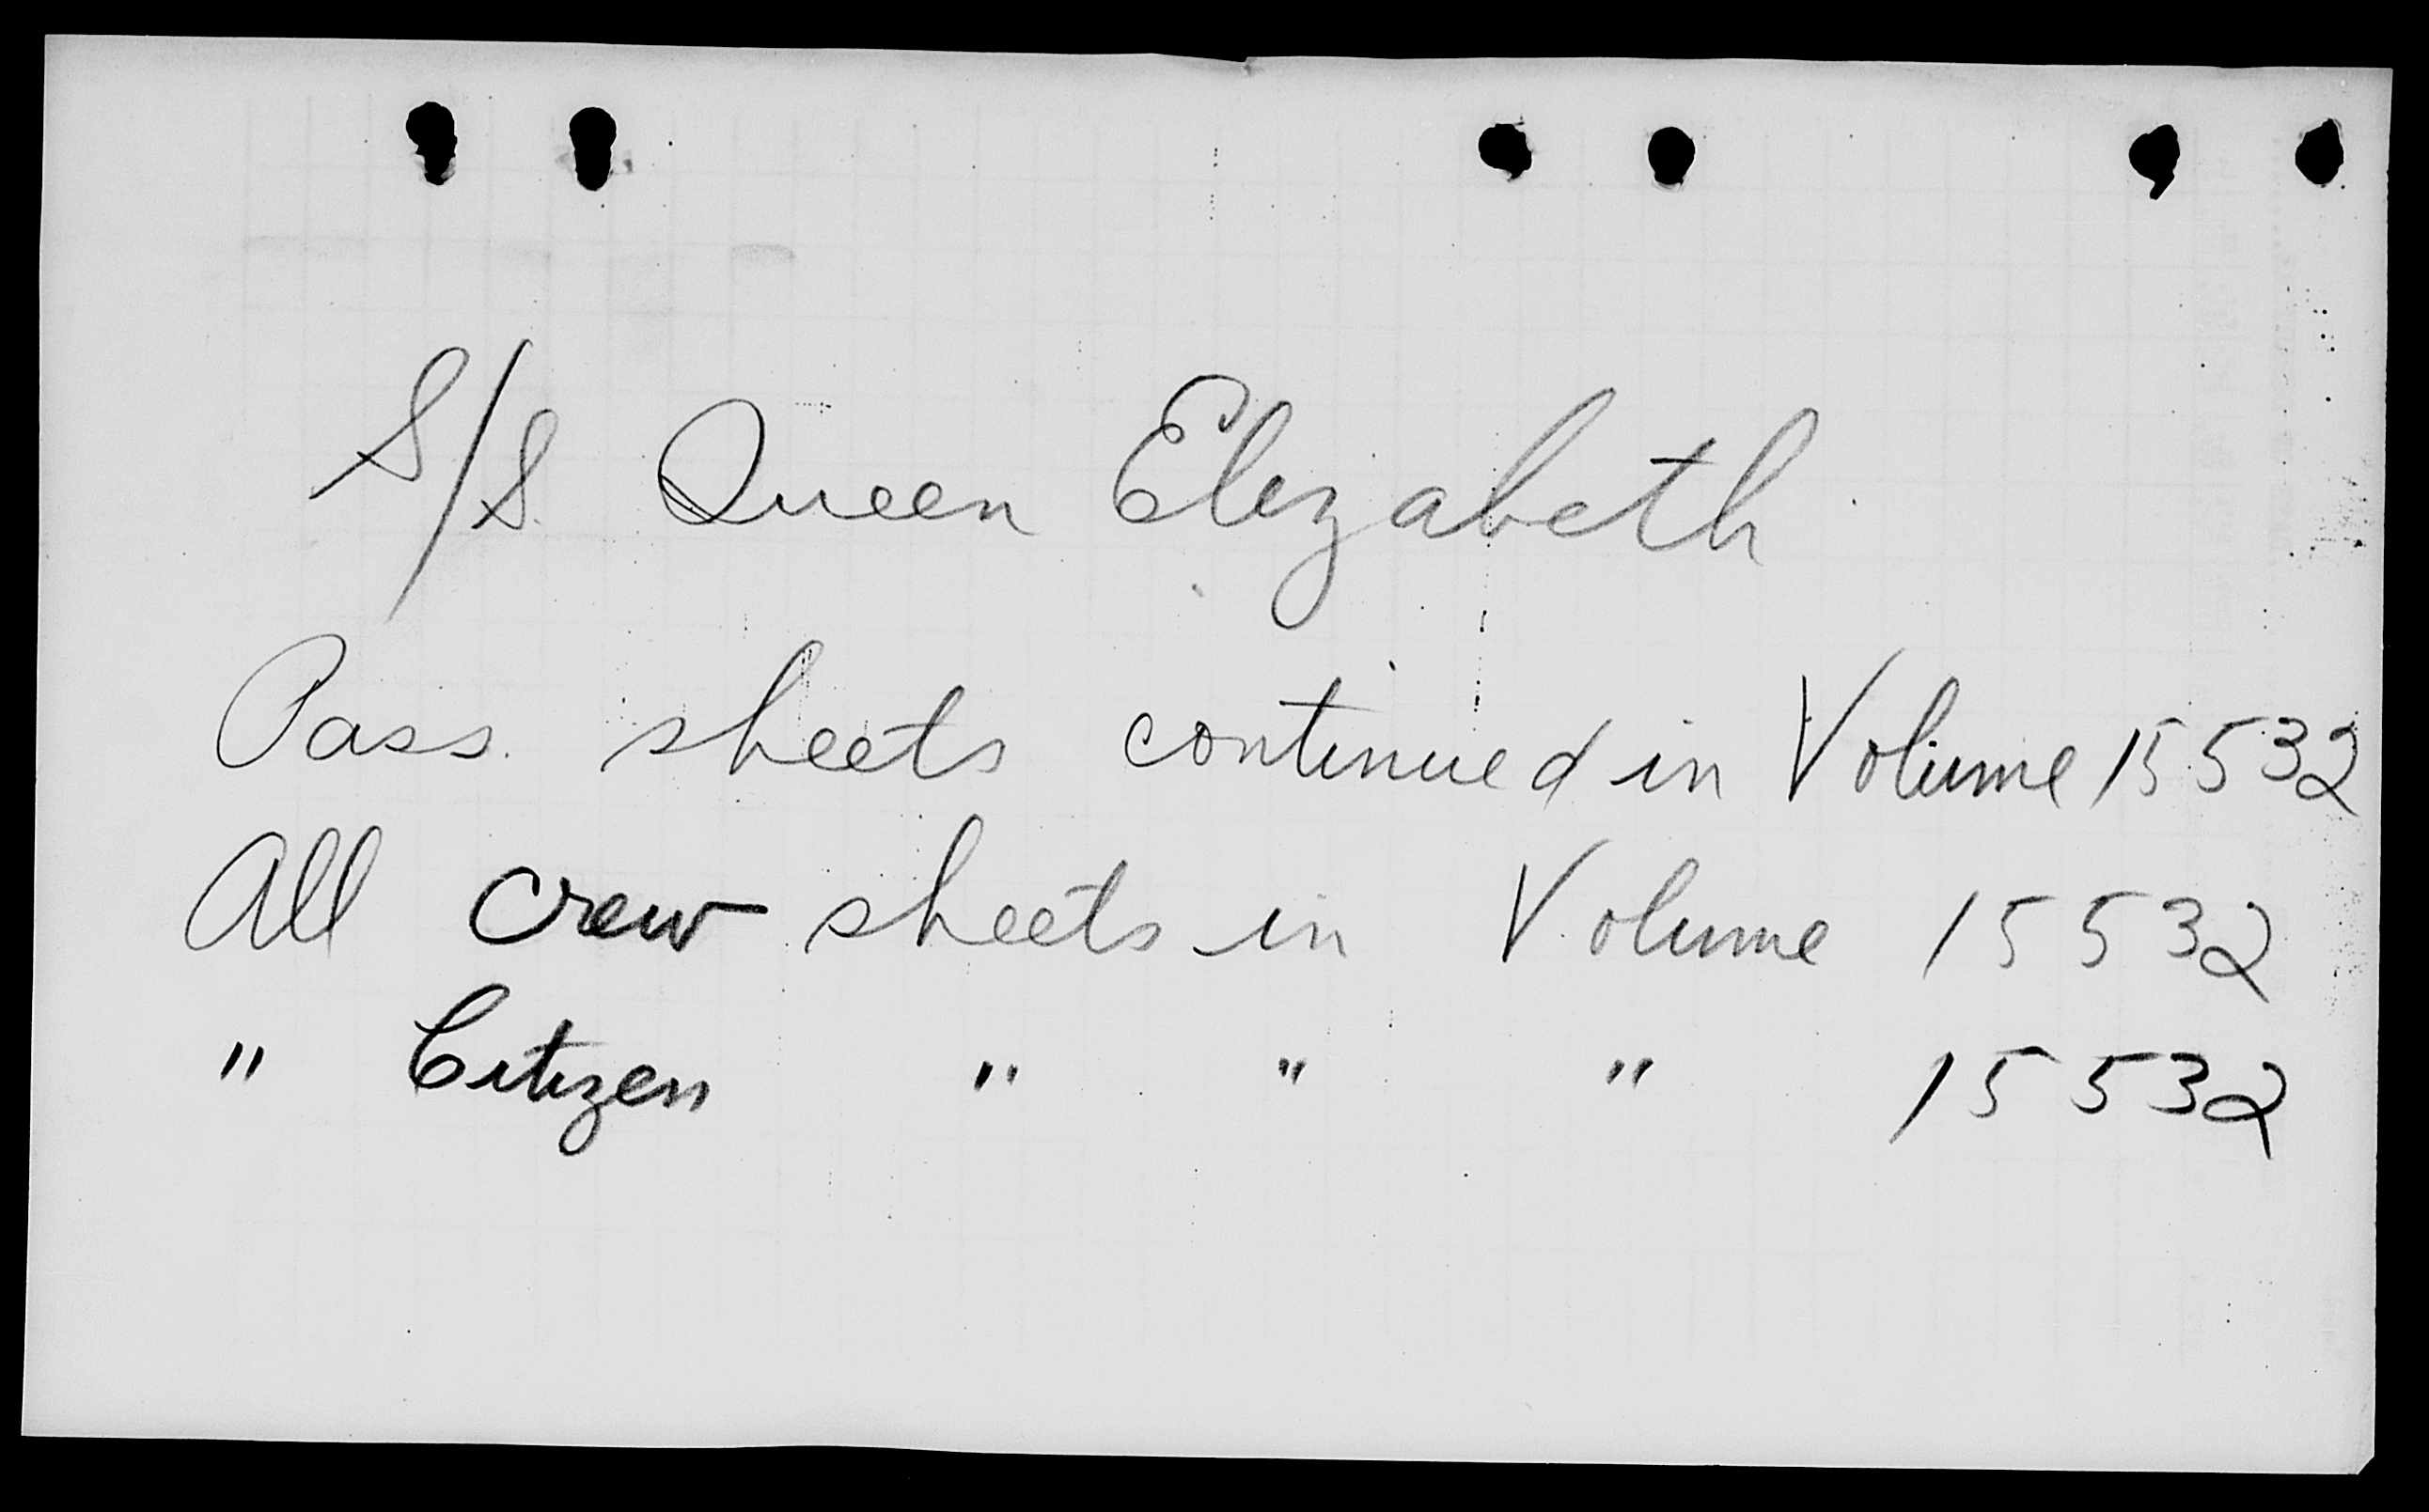 S/S. Queen Elizabeth
Pass. sheets continued in Volume 15532
All crew sheets in Volume 15532
" Citizen " " " 15532